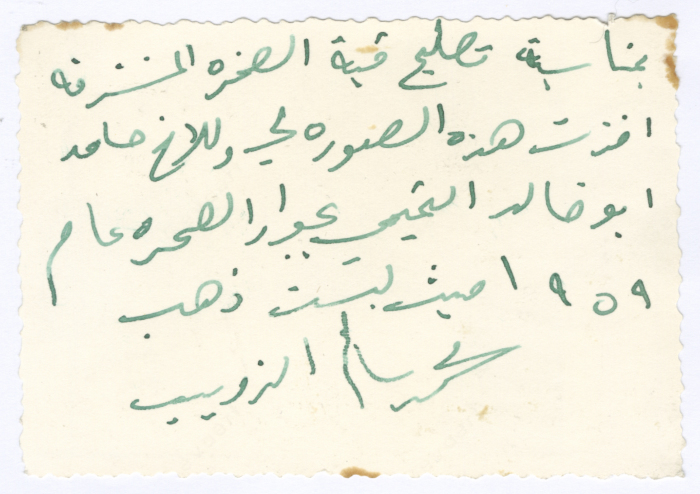 بمناسبة تصليح قبة الصخره المشرفه
اخذت هذه الصوره لي وللاخ حامد
ابو خالد التميمي بجوار الصخره عام
١٩٥٩ حيث لبست ذهب
محمد سالم الزرو